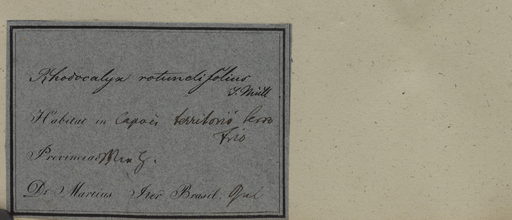 Rhodocalyx rotundifolius
J. Müll.
Habitat in Capões territorio Serro
frio
Provinciae Min G.
Dr Martius Iter Brasil.